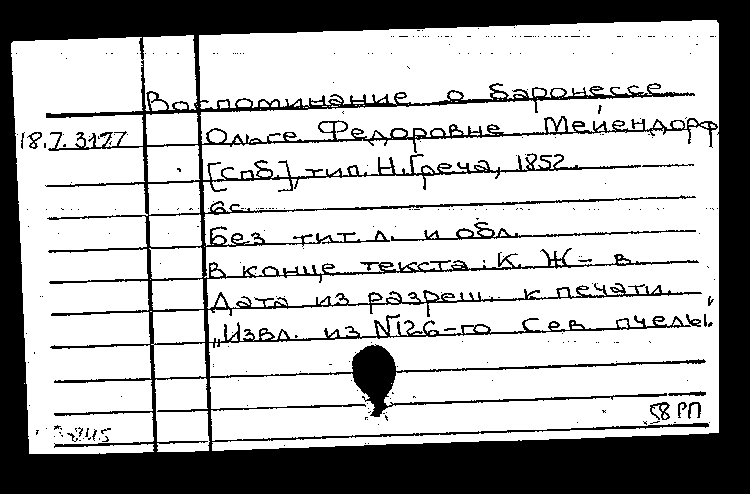 Воспоминание о баронессе
18.7.3177 Ольге Федоровне Мейендорф
[Спб.], тип. Н. Греча, 1852.
6с.
Без тит. л. и обл.
В конце текста: К. Ж-в.
Дата из разреш. к печати.
„Извл. из №126-го Сев. пчелы".
58 РП